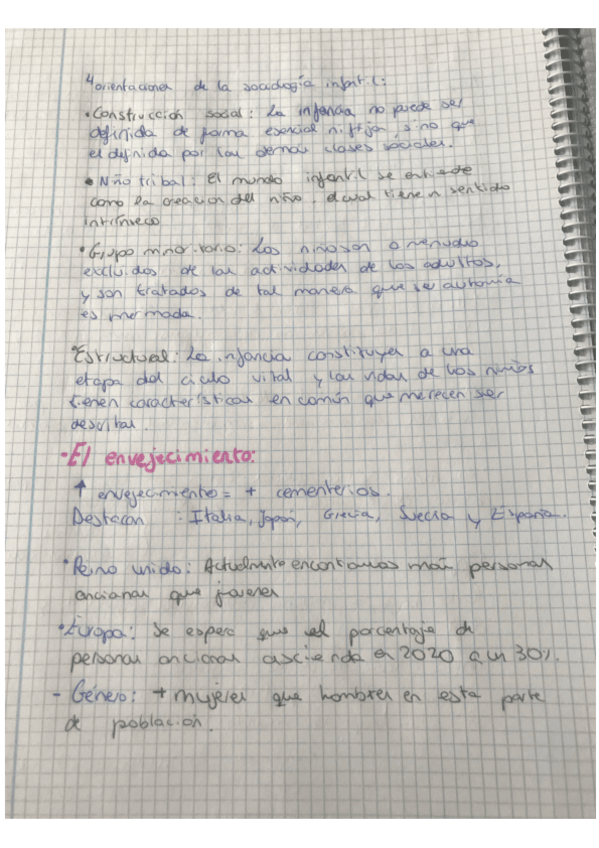 4 orientaciones de la sociología infantil:
• Construcción social: La infancia no puede ser
definida de forma esencial ni fija, sino que
el definida por las demás clases sociales.
• Niño tribal: El mundo infantil se entiede
como la creación del niño. el cual tiene n sentido
intrínseco
• Grupo minoritario: Los niños on a menudo
excluidos de las actividades de los adultos,
y son tratados de tal manera que se autonomía
es mermada.
• Estructural: La infancia constituyer a una
etapa del ciclo vital y las vidas de los niños
tienen características en común que merecen ser
descritas.
• El envejecimiento:
↑ envejecimiento = + cementerios.
Destacan : Italia, Japón, Grecia, Suecia y España.
• Reino unido: Actualmente encontramos más personas
ancianas que jóvenes
• Europa: Se espera que el porcentaje de
personas ancianas ascienda en 2020 a un 30%.
- Género: + mujeres que hombres en esta parte
de población.